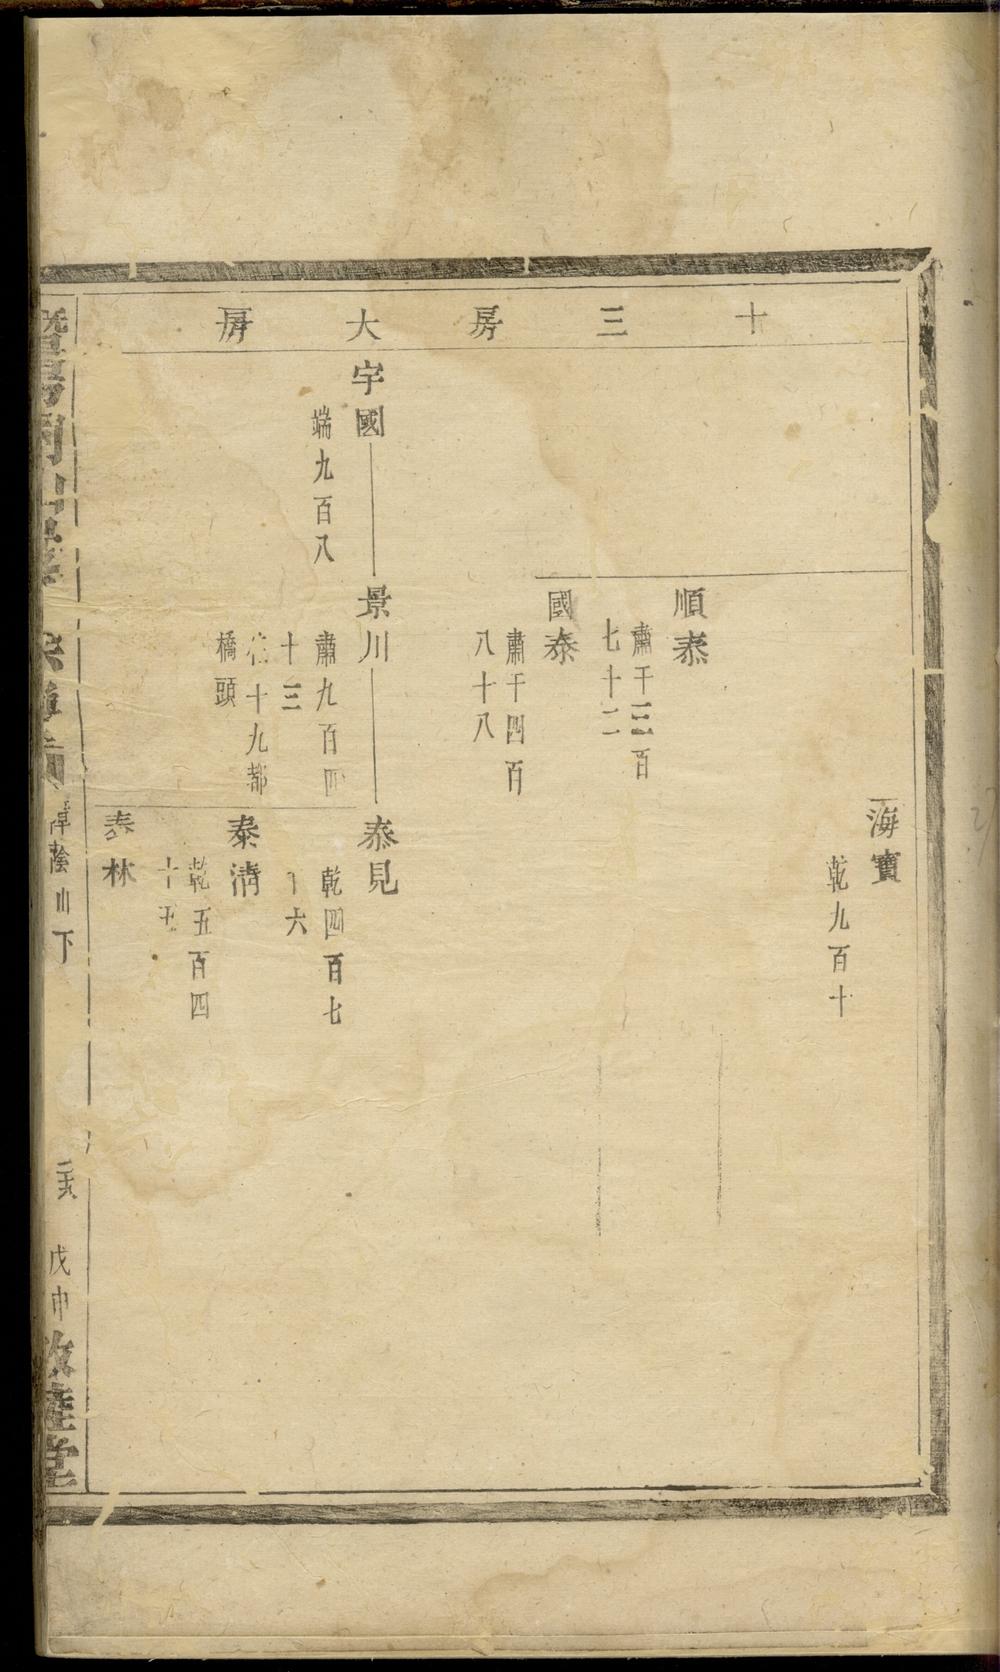 十三房大房
海寶
乾九百十
順泰
肅千三百
七十二
國泰
肅千四百
八十八
宇國
端九百八
景川
肅九百四
十三
住十九都
橋頭
泰見
乾四百七
十六
泰清
乾五百四
十五
泰林
暨陽
下
戊申